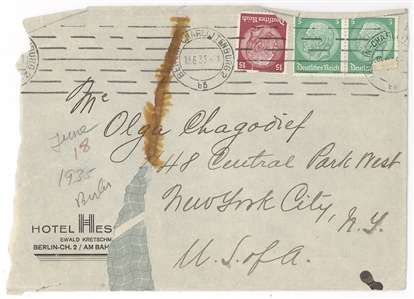 5
5
Deutsches Reich
15
15
Deutsches Reich
Deutsches Reich
BERLIN-CHARLOTTENBURG 2
18.6.35.-1
bb
Me
Olga Chagodief
48 Central Park West
New York City, N.Y.
U.S. of A.
June
18
1935
Berlin
HOTEL HES
EWALD KRETSCHM
BERLIN-CH. 2 / AM BAH